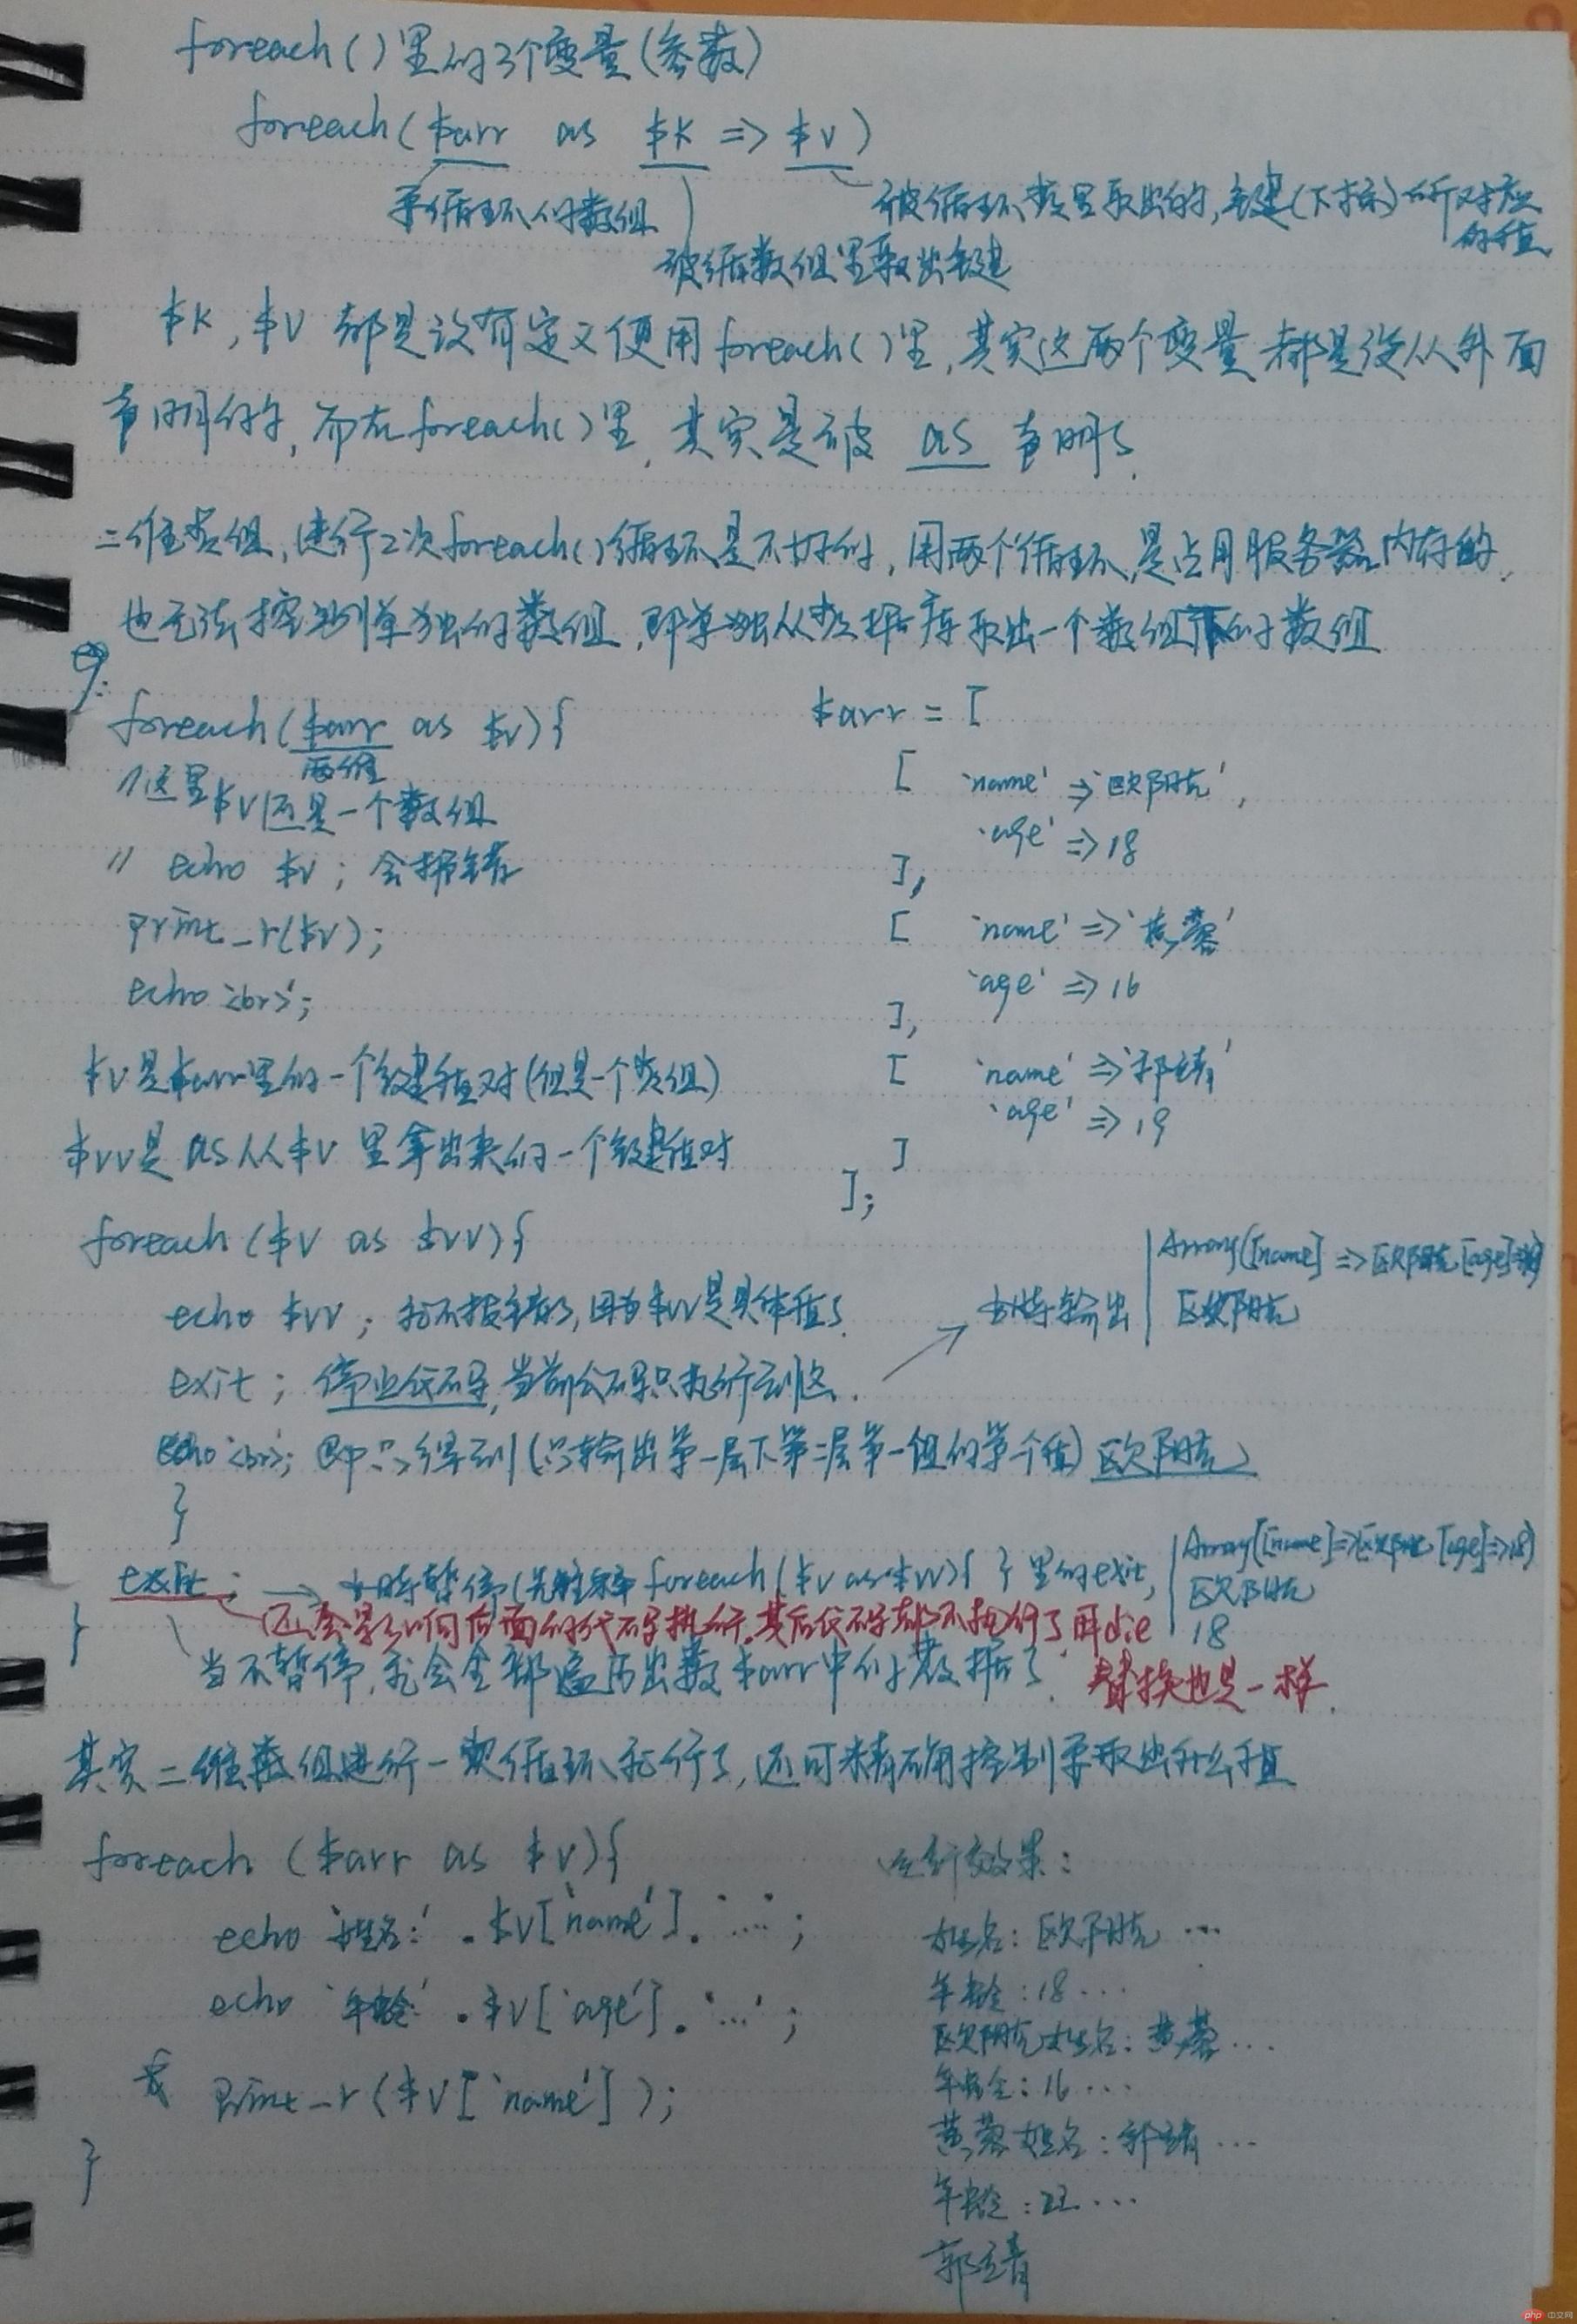 foreach()里的3个变量(参数)
foreach($arr as $k => $v)
要循环的数组
被循环数组里取出的,键(下标)所对应的值
被循数组里取出键
$k,$v 都是没有定义便用foreach()里,其实这两个变量都是没从外面
声明的,而在foreach()里,其实是被 as 声明了.
二维数组,进行2次foreach()循环是不好的,用两个循环,是占用服务器内存的,
也无法控制单独的数组,即单独从数据库取出一个数组下的子数组
例:
foreach($arr as $v){
两维
//这里$v还是一个数组
// echo $v; 会报错
print_r($v);
echo '<br>';
$v是$arr里的一个键值对(但是一个数组)
$vv是as从$v里拿出来的一个键值对
$arr = [
[ 'name' => '欧阳克',
'age' => 18
],
[ 'name' => '黄蓉'
'age' => 16
],
[ 'name' => '郭靖'
'age' => 19
]
];
foreach ($v as $vv){
echo $vv; 就不报错了,因为$vv是具体值了.
exit; 停止代码,当前代码只执行到这.
此时输出
Array([name] => 欧阳克 [age]
欧阳克
echo '<br>'; 即只得到(只输出第一层下第二层第一组的第一个值)欧阳克
}
exit; → 此时暂停(先注释foreach($v as $vv){ }里的exit,
Array([name]=>欧阳克 [age]=>18)
欧阳克
18
还会影响后面的代码执行.其后代码都不执行了用die
替换也是一样.
}
当不暂停,就会全部遍历出数$arr中的数据了.
其实二维数组进行一次循环就行了,还可精确控制要取出什么值
foreach ($arr as $v){
echo '姓名:' . $v['name']. '...';
echo '年龄' . $v['age']. '...';
print_r($v['name']);
}
运行效果:
姓名:欧阳克 ...
年龄:18...
欧阳克姓名:黄蓉...
年龄:16...
黄蓉姓名:郭靖...
年龄:22...
郭靖
php 中文网